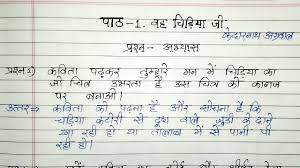 पाठ-1. वह चिड़िया जो
केदारनाथ अग्रवाल
प्रश्न- अभ्यास
प्रश्न1) कविता पढ़कर तुम्हारे मन में चिड़िया का
जो चित्र उभरता है उस चित्र को कागज
पर बनाओ।
उत्तर→ कविता को पढ़ना है और सोचना है कि
चिड़िया कटोरी से दूध वाले जुंडी के दाने
खा रही हो या तालाब में से पानी पी
रही हो।